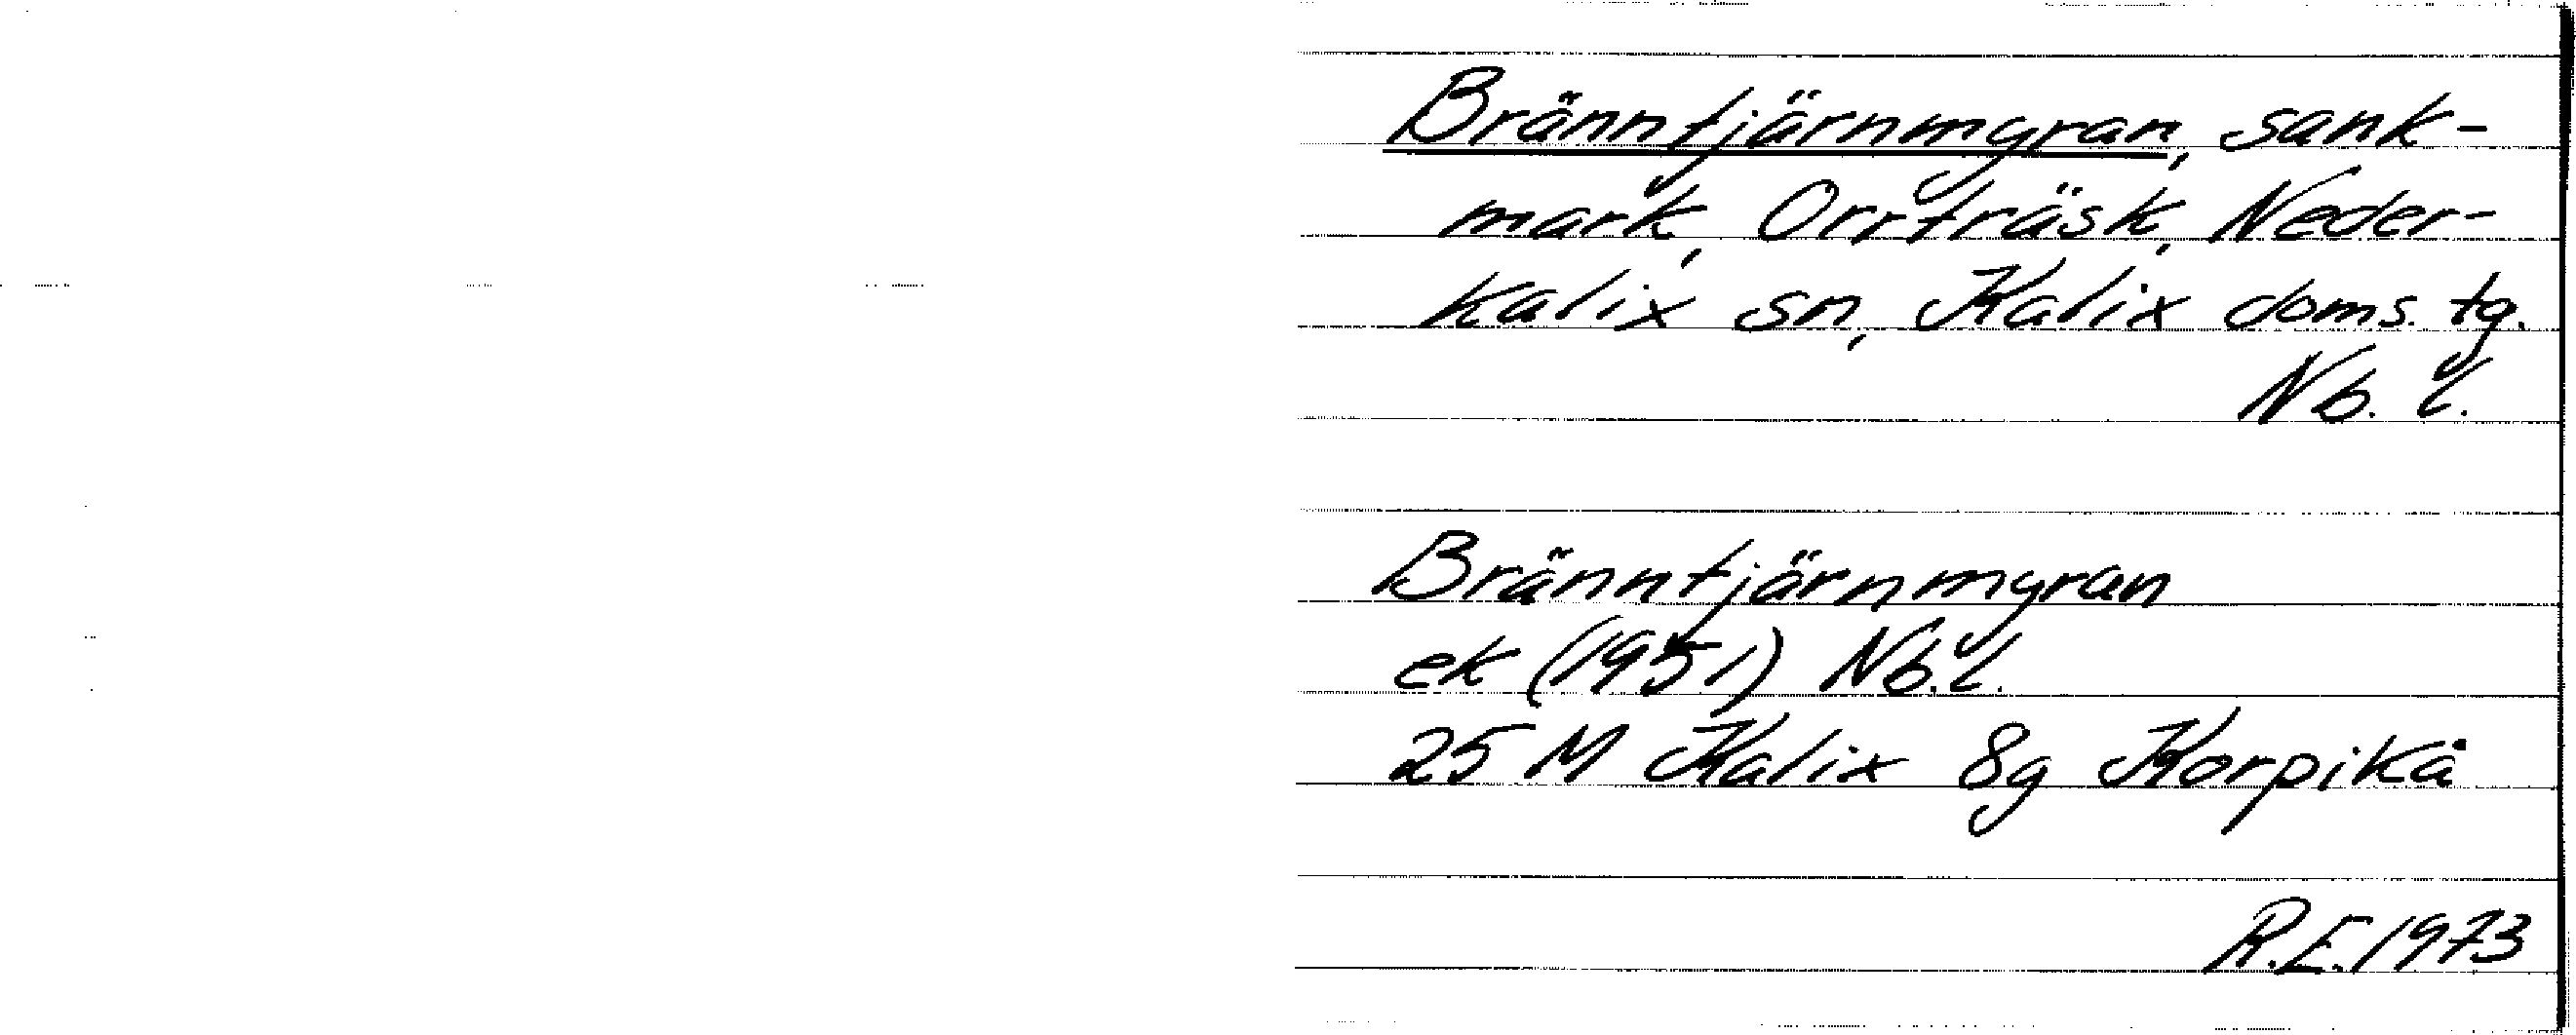 Bränntjärnmyran, sank-
mark, Orrträsk, Neder-
kalix sn, Kalix doms. tg.
Nb. l.
Bränntjärnmyran
ek (1951) Nb. l.
25 M Kalix 8g Korpikå
R.E. 1973